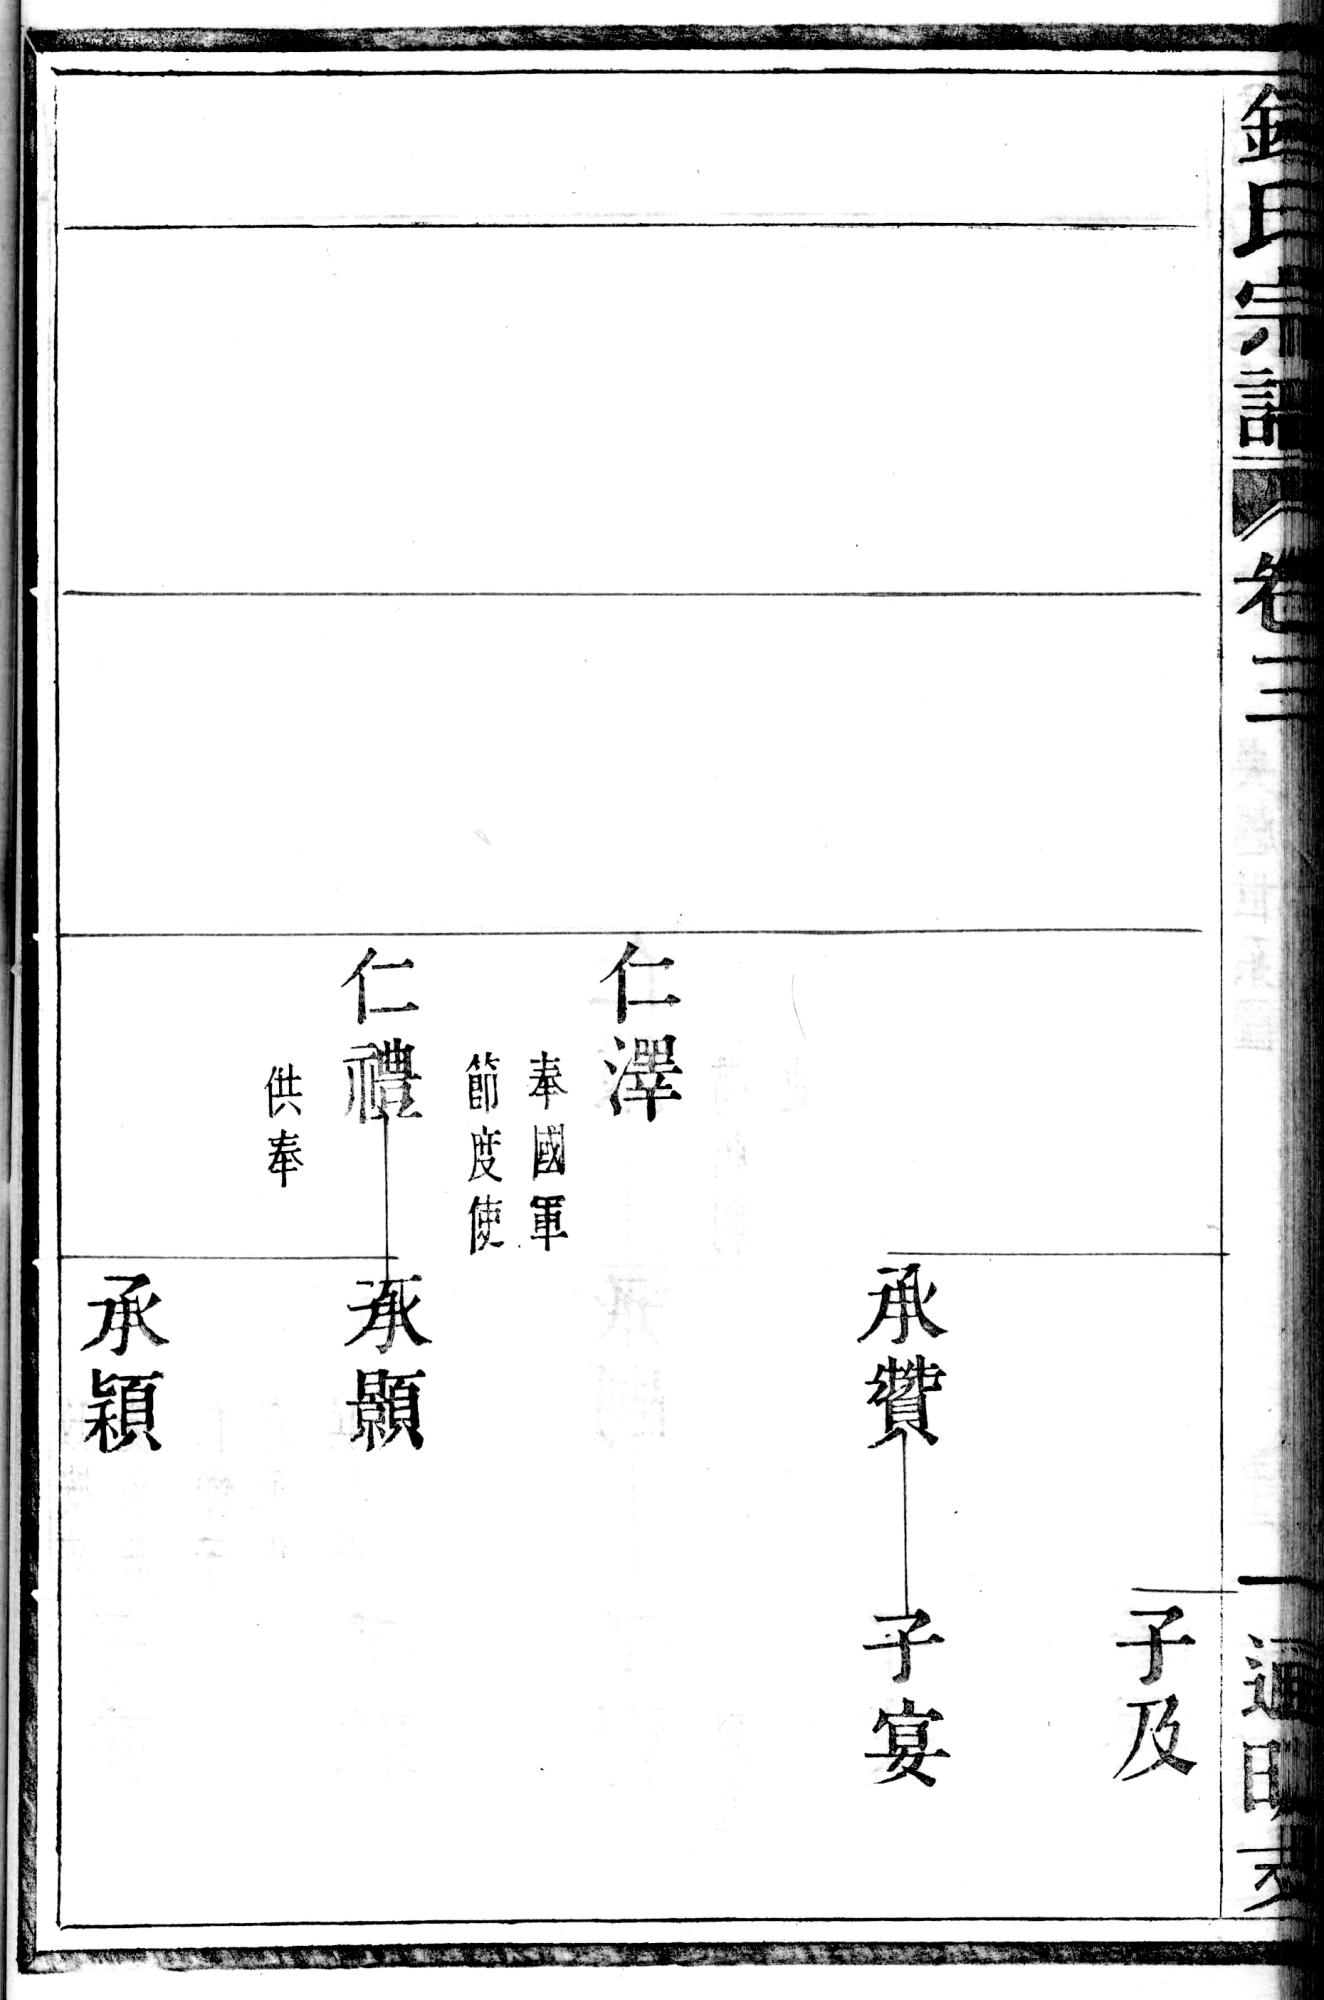 錢氏宗譜 卷三
一
通
子及
承贊
子宴
仁澤
奉國軍
節度使
仁禮
供奉
承顥
承穎